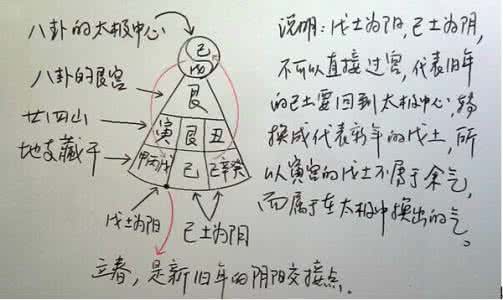 八卦的太极中心
八卦的艮宫
廿四山
地支藏干
己
艮
寅 艮 丑
甲丙戊 己 己辛癸
戊土为阳
己土为阴
立春，是新旧年的阴阳交接点。
说明：戊土为阳，己土为阴，
不可以直接过宫，代表旧年
的己土要回到太极中心，转
换成代表新年的戊土，所
以寅宫的戊土不属于余气，
而属于在太极中换出的气。